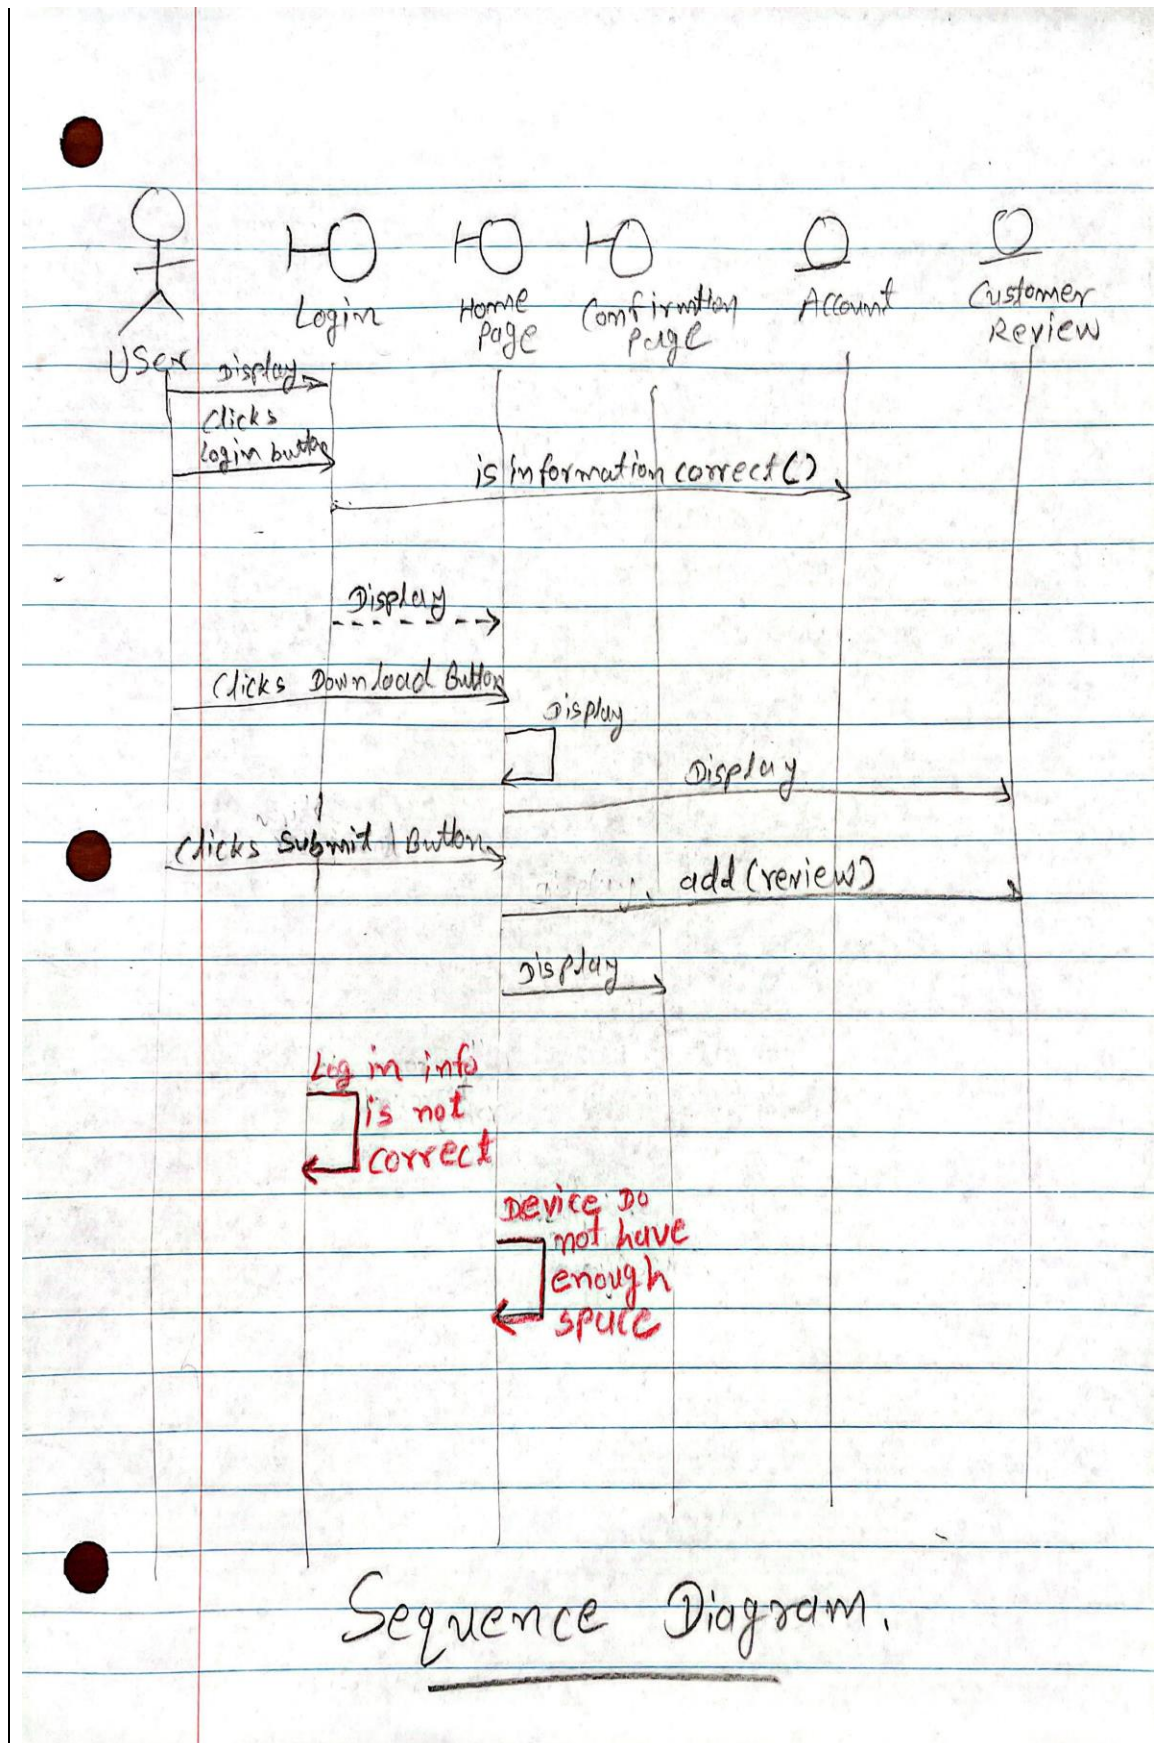 User
Login
Home
Page
Confirmtion
Page
Account
Customer
Review
Display
Clicks
Login button
is information correct()
Display
Clicks Download Button
Display
Display
Clicks Submit Button
add (review)
Display
Log in info
is not
correct
Device Do
not have
enough
space
Sequence Diagram.